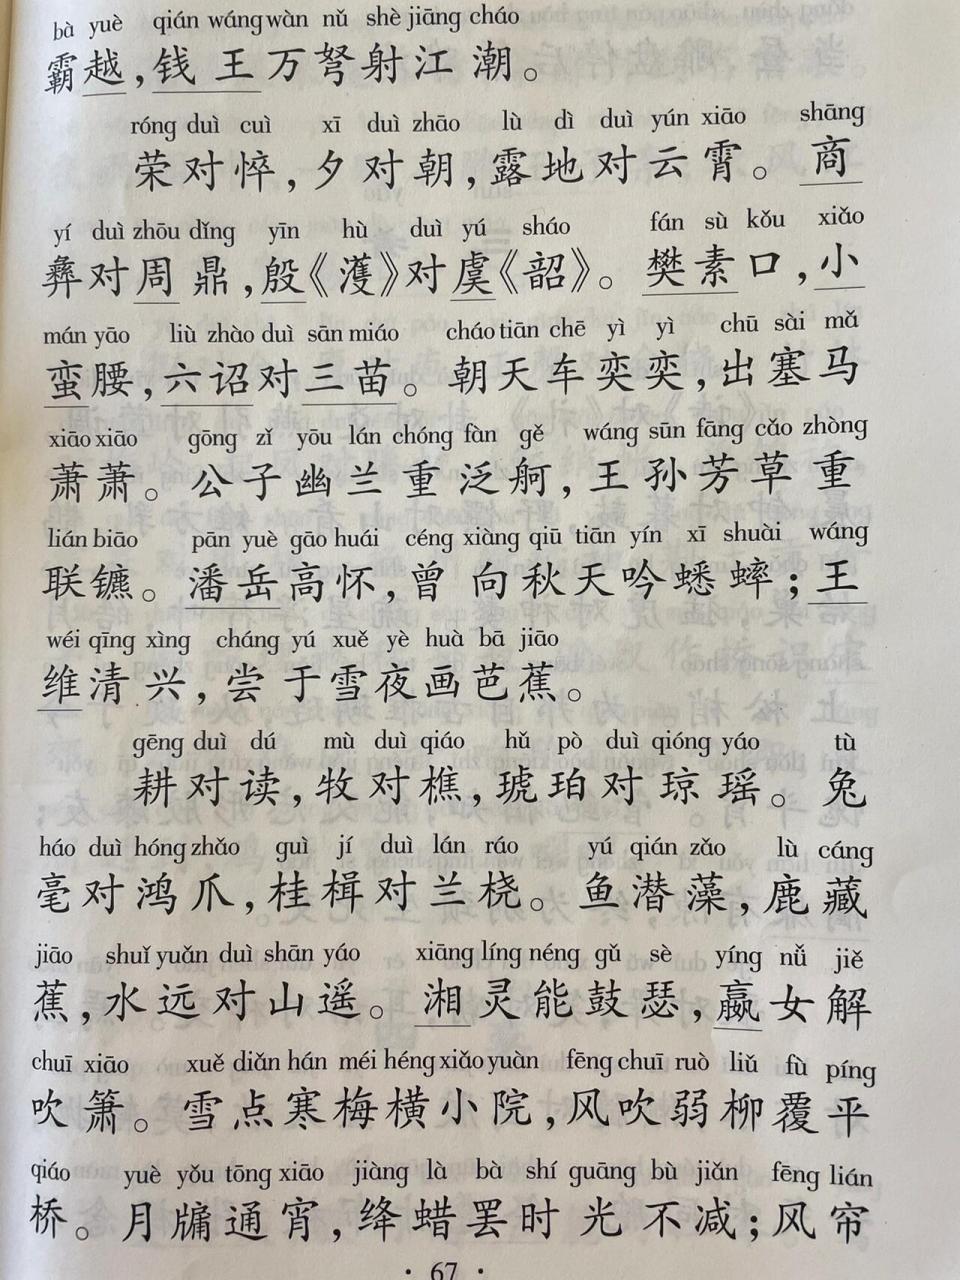 bà yuè qián wáng wàn nǔ shè jiāng cháo
霸越，钱王万弩射江潮。
róng duì cuì xī duì zhāo lù dì duì yún xiāo shāng
荣对悴，夕对朝，露地对云霄。商
yí duì zhōu dǐng yīn hù duì yú sháo fán sù kǒu xiǎo
彝对周鼎，殷《濩》对虞《韶》。樊素口，小
mán yāo liù zhào duì sān miáo cháo tiān chē yì yì chū sài mǎ
蛮腰，六诏对三苗。朝天车奕奕，出塞马
xiāo xiāo gōng zǐ yōu lán chóng fàn gě wáng sūn fāng cǎo zhòng
萧萧。公子幽兰重泛舸，王孙芳草重
lián biāo pān yuè gāo huái céng xiàng qiū tiān yín xī shuài wáng
联镳。潘岳高怀，曾向秋天吟蟋蟀；王
wéi qīng xìng cháng yú xuě yè huà bā jiāo
维清兴，尝于雪夜画芭蕉。
gēng duì dú mù duì qiáo hǔ pò duì qióng yáo tù
耕对读，牧对樵，琥珀对琼瑶。兔
háo duì hóng zhǎo guì jí duì lán ráo yú qián zǎo lù cáng
毫对鸿爪，桂楫对兰桡。鱼潜藻，鹿藏
jiāo shuǐ yuǎn duì shān yáo xiāng líng néng gǔ sè yíng nǚ jiě
蕉，水远对山遥。湘灵能鼓瑟，嬴女解
chuī xiāo xuě diǎn hán méi héng xiǎo yuàn fēng chuī ruò liǔ fù píng
吹箫。雪点寒梅横小院，风吹弱柳覆平
qiáo yuè yǒu tōng xiāo jiàng là bà shí guāng bù jiǎn fēng lián
桥。月牖通宵，绛蜡罢时光不减；风帘
· 67 ·